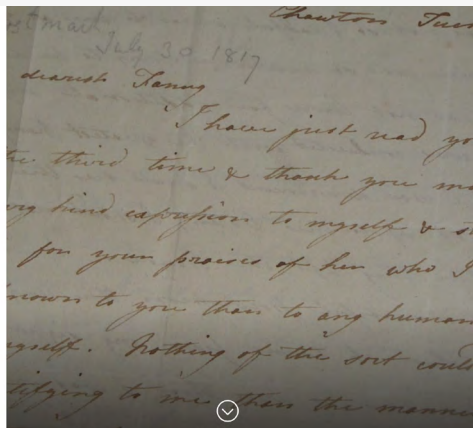 Chawton Tues
ostmark
July 30 1817
dearest Fanny
I have just read yo
the third time & thank you m
ery kind expression to myself & s
for your praises of her who I
known to you than to any human
yself. Nothing of the sort could
tifying to me than the manne